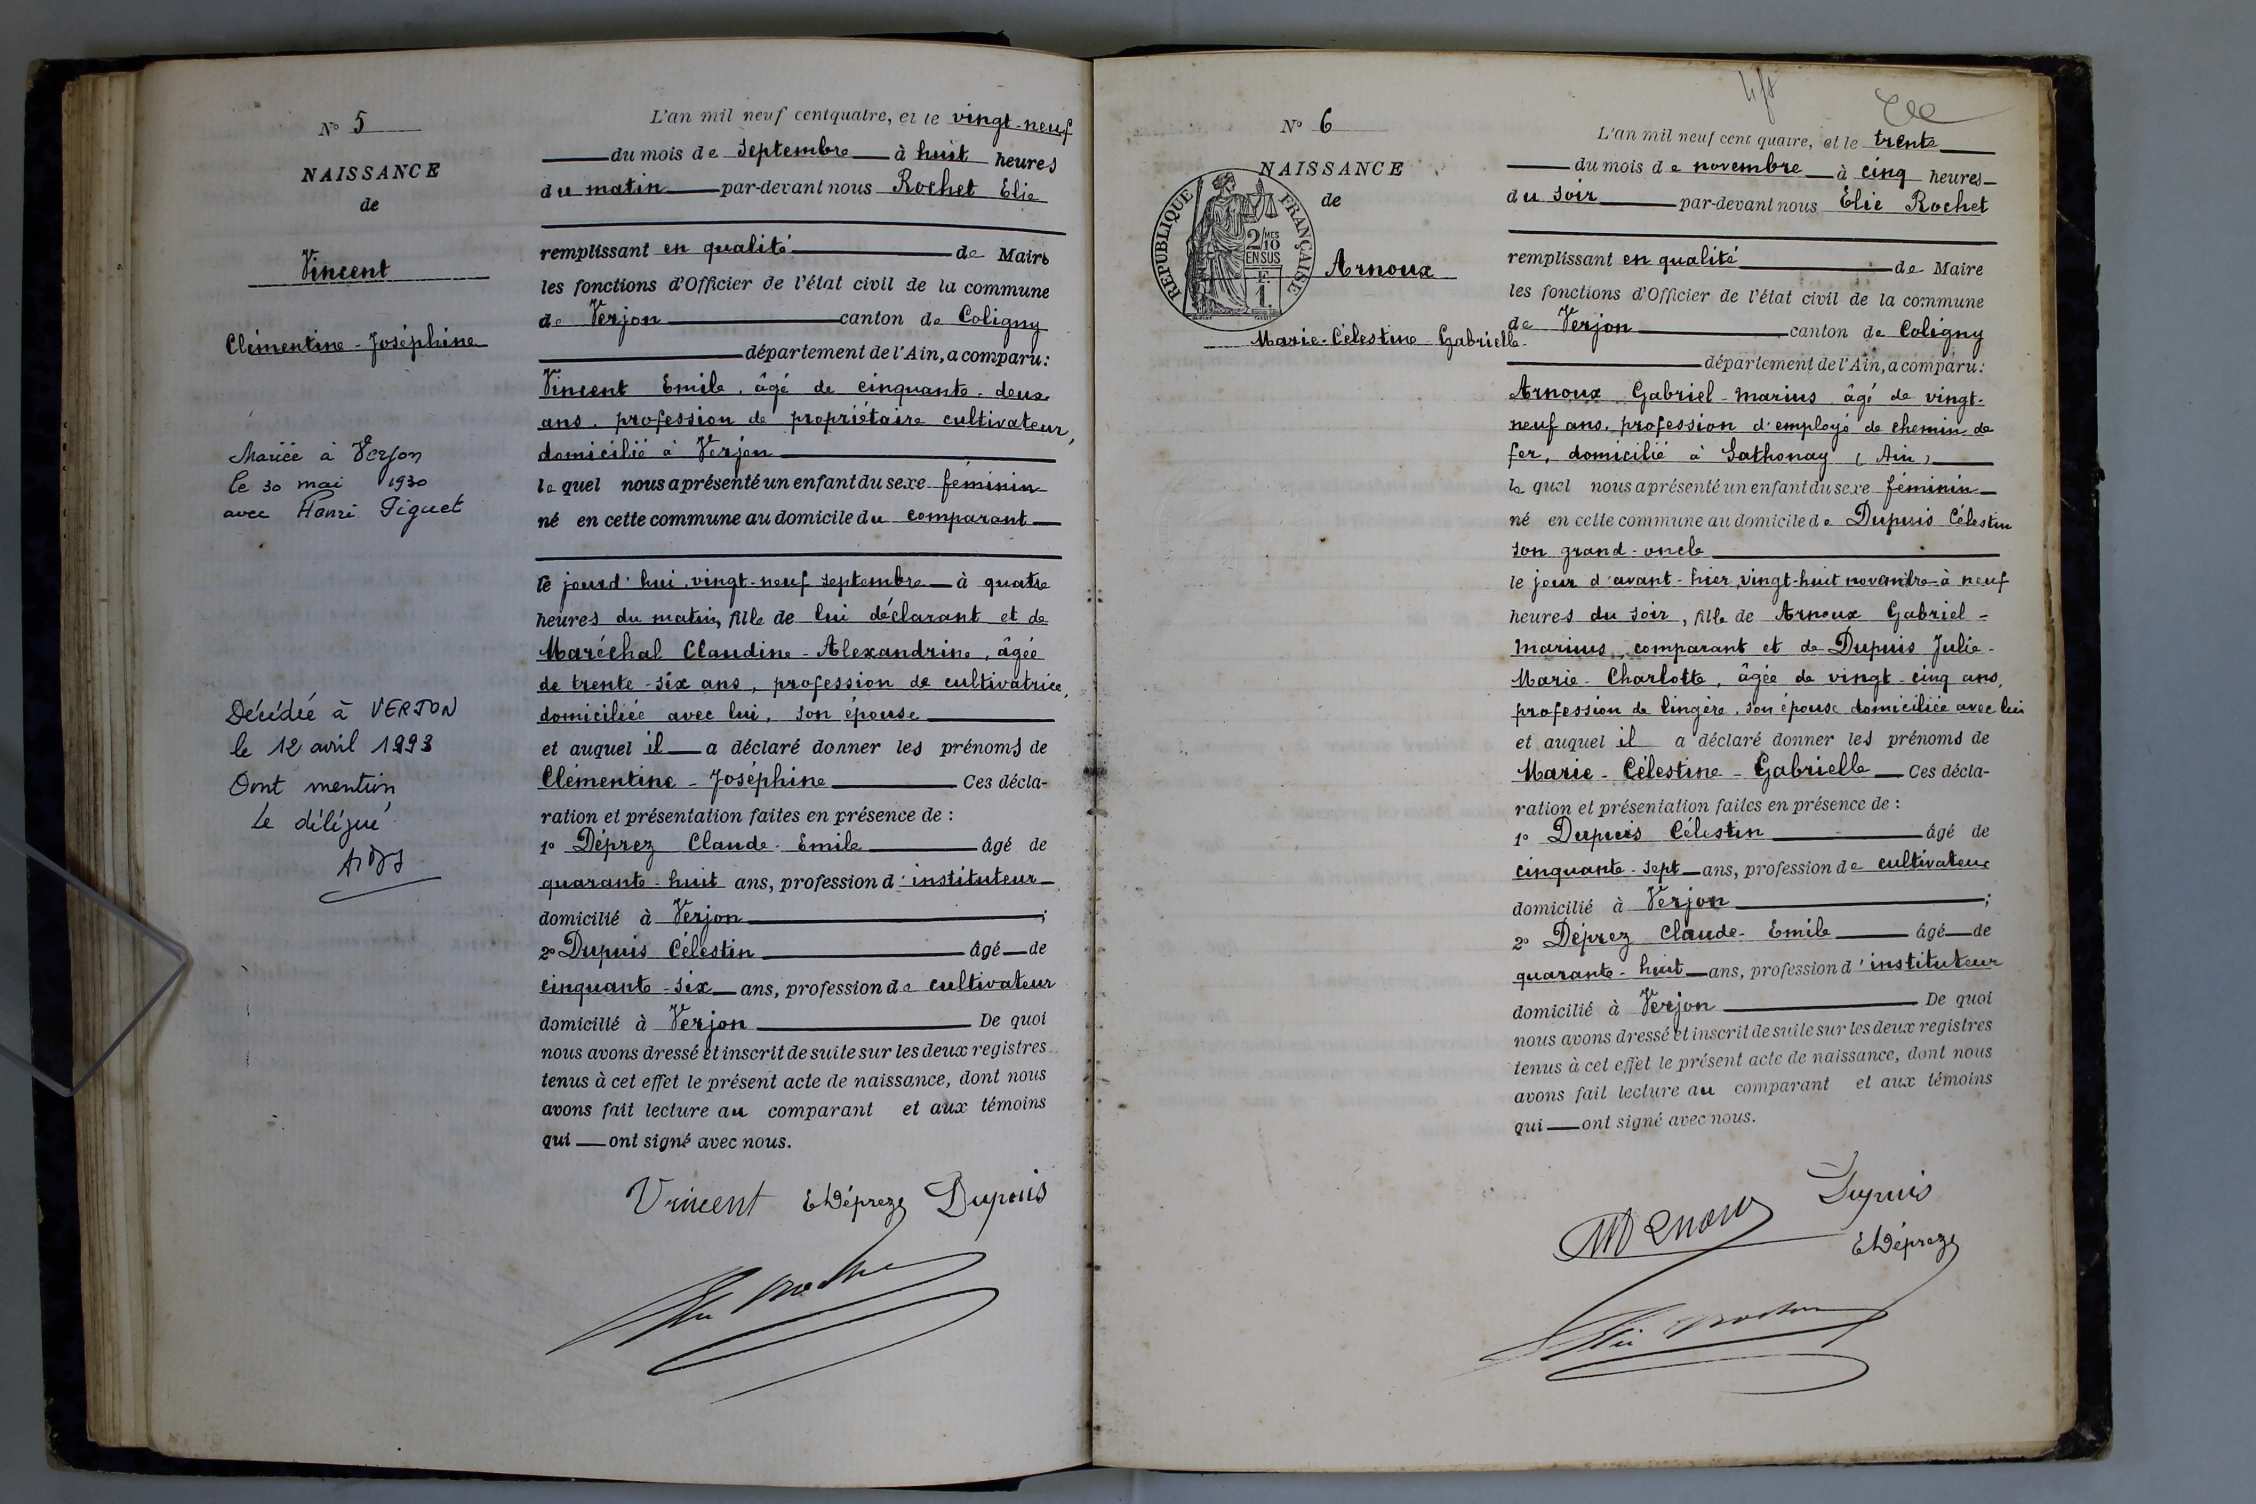 N° 5
NAISSANCE
de
Vincent
Clémentine - Joséphine
Mariée à Verjon
le 30 mai 1930
avec Henri Piguet
Décédée à VERJON
le 12 avril 1993
Dont mention
Le délégué
L'an mil neuf centquatre, et le vingt-neuf
du mois de septembre à huit heures
du matin par-devant nous Rochet Elie
remplissant en qualité de Maire
les fonctions d'Officier de l'état civil de la commune
de Verjon canton de Coligny
département de l'Ain, a comparu:
Vincent Emile, âgé de cinquante-deux
ans, profession de propriétaire cultivateur,
domicilié à Verjon
le quel nous a présenté un enfant du sexe féminin
né en cette commune au domicile du comparant
le jourd'hui, vingt-neuf septembre à quatre
heures du matin, fille de lui déclarant et de
Maréchal Claudine-Alexandrine, âgée
de trente-six ans, profession de cultivatrice,
domiciliée avec lui, son épouse
et auquel il a déclaré donner les prénoms de
Clémentine - Joséphine Ces décla-
ration et présentation faites en présence de :
1° Déprez Claude-Emile âgé de
quarante-huit ans, profession d'instituteur
domicilié à Verjon ;
2° Dupuis Célestin âgé de
cinquante-six ans, profession de cultivateur
domicilié à Verjon De quoi
nous avons dressé et inscrit de suite sur les deux registres
tenus à cet effet le présent acte de naissance, dont nous
avons fait lecture au comparant et aux témoins
qui ont signé avec nous.
Vincent E Déprez Dupuis
Elie Rochet
N° 6
NAISSANCE
de
RÉPUBLIQUE FRANÇAISE
2/MES
10
EN SUS
F.
1.
Arnoux
Marie-Célestine-Gabrielle
L'an mil neuf cent quatre, et le trente
du mois de novembre à cinq heures
du soir par-devant nous Elie Rochet
remplissant en qualité de Maire
les fonctions d'Officier de l'état civil de la commune
de Verjon canton de Coligny
département de l'Ain, a comparu:
Arnoux Gabriel-Marius âgé de vingt-
neuf ans, profession d'employé de chemin de
fer, domicilié à Sathonay (Ain)
le quel nous a présenté un enfant du sexe féminin
né en cette commune au domicile de Dupuis Célestin
son grand-oncle
le jour d'avant-hier, vingt-huit novembre à neuf
heures du soir, fille de Arnoux Gabriel-
Marius, comparant et de Dupuis Julie-
Marie-Charlotte, âgée de vingt-cinq ans,
profession de lingère, son épouse domiciliée avec lui
et auquel il a déclaré donner les prénoms de
Marie-Célestine-Gabrielle Ces décla-
ration et présentation faites en présence de :
1° Dupuis Célestin âgé de
cinquante-sept ans, profession de cultivateur
domicilié à Verjon ;
2° Déprez Claude-Emile âgé de
quarante-huit ans, profession d'instituteur
domicilié à Verjon De quoi
nous avons dressé et inscrit de suite sur les deux registres
tenus à cet effet le présent acte de naissance, dont nous
avons fait lecture au comparant et aux témoins
qui ont signé avec nous.
Dupuis
Arnoux
E Déprez
Elie Rochet